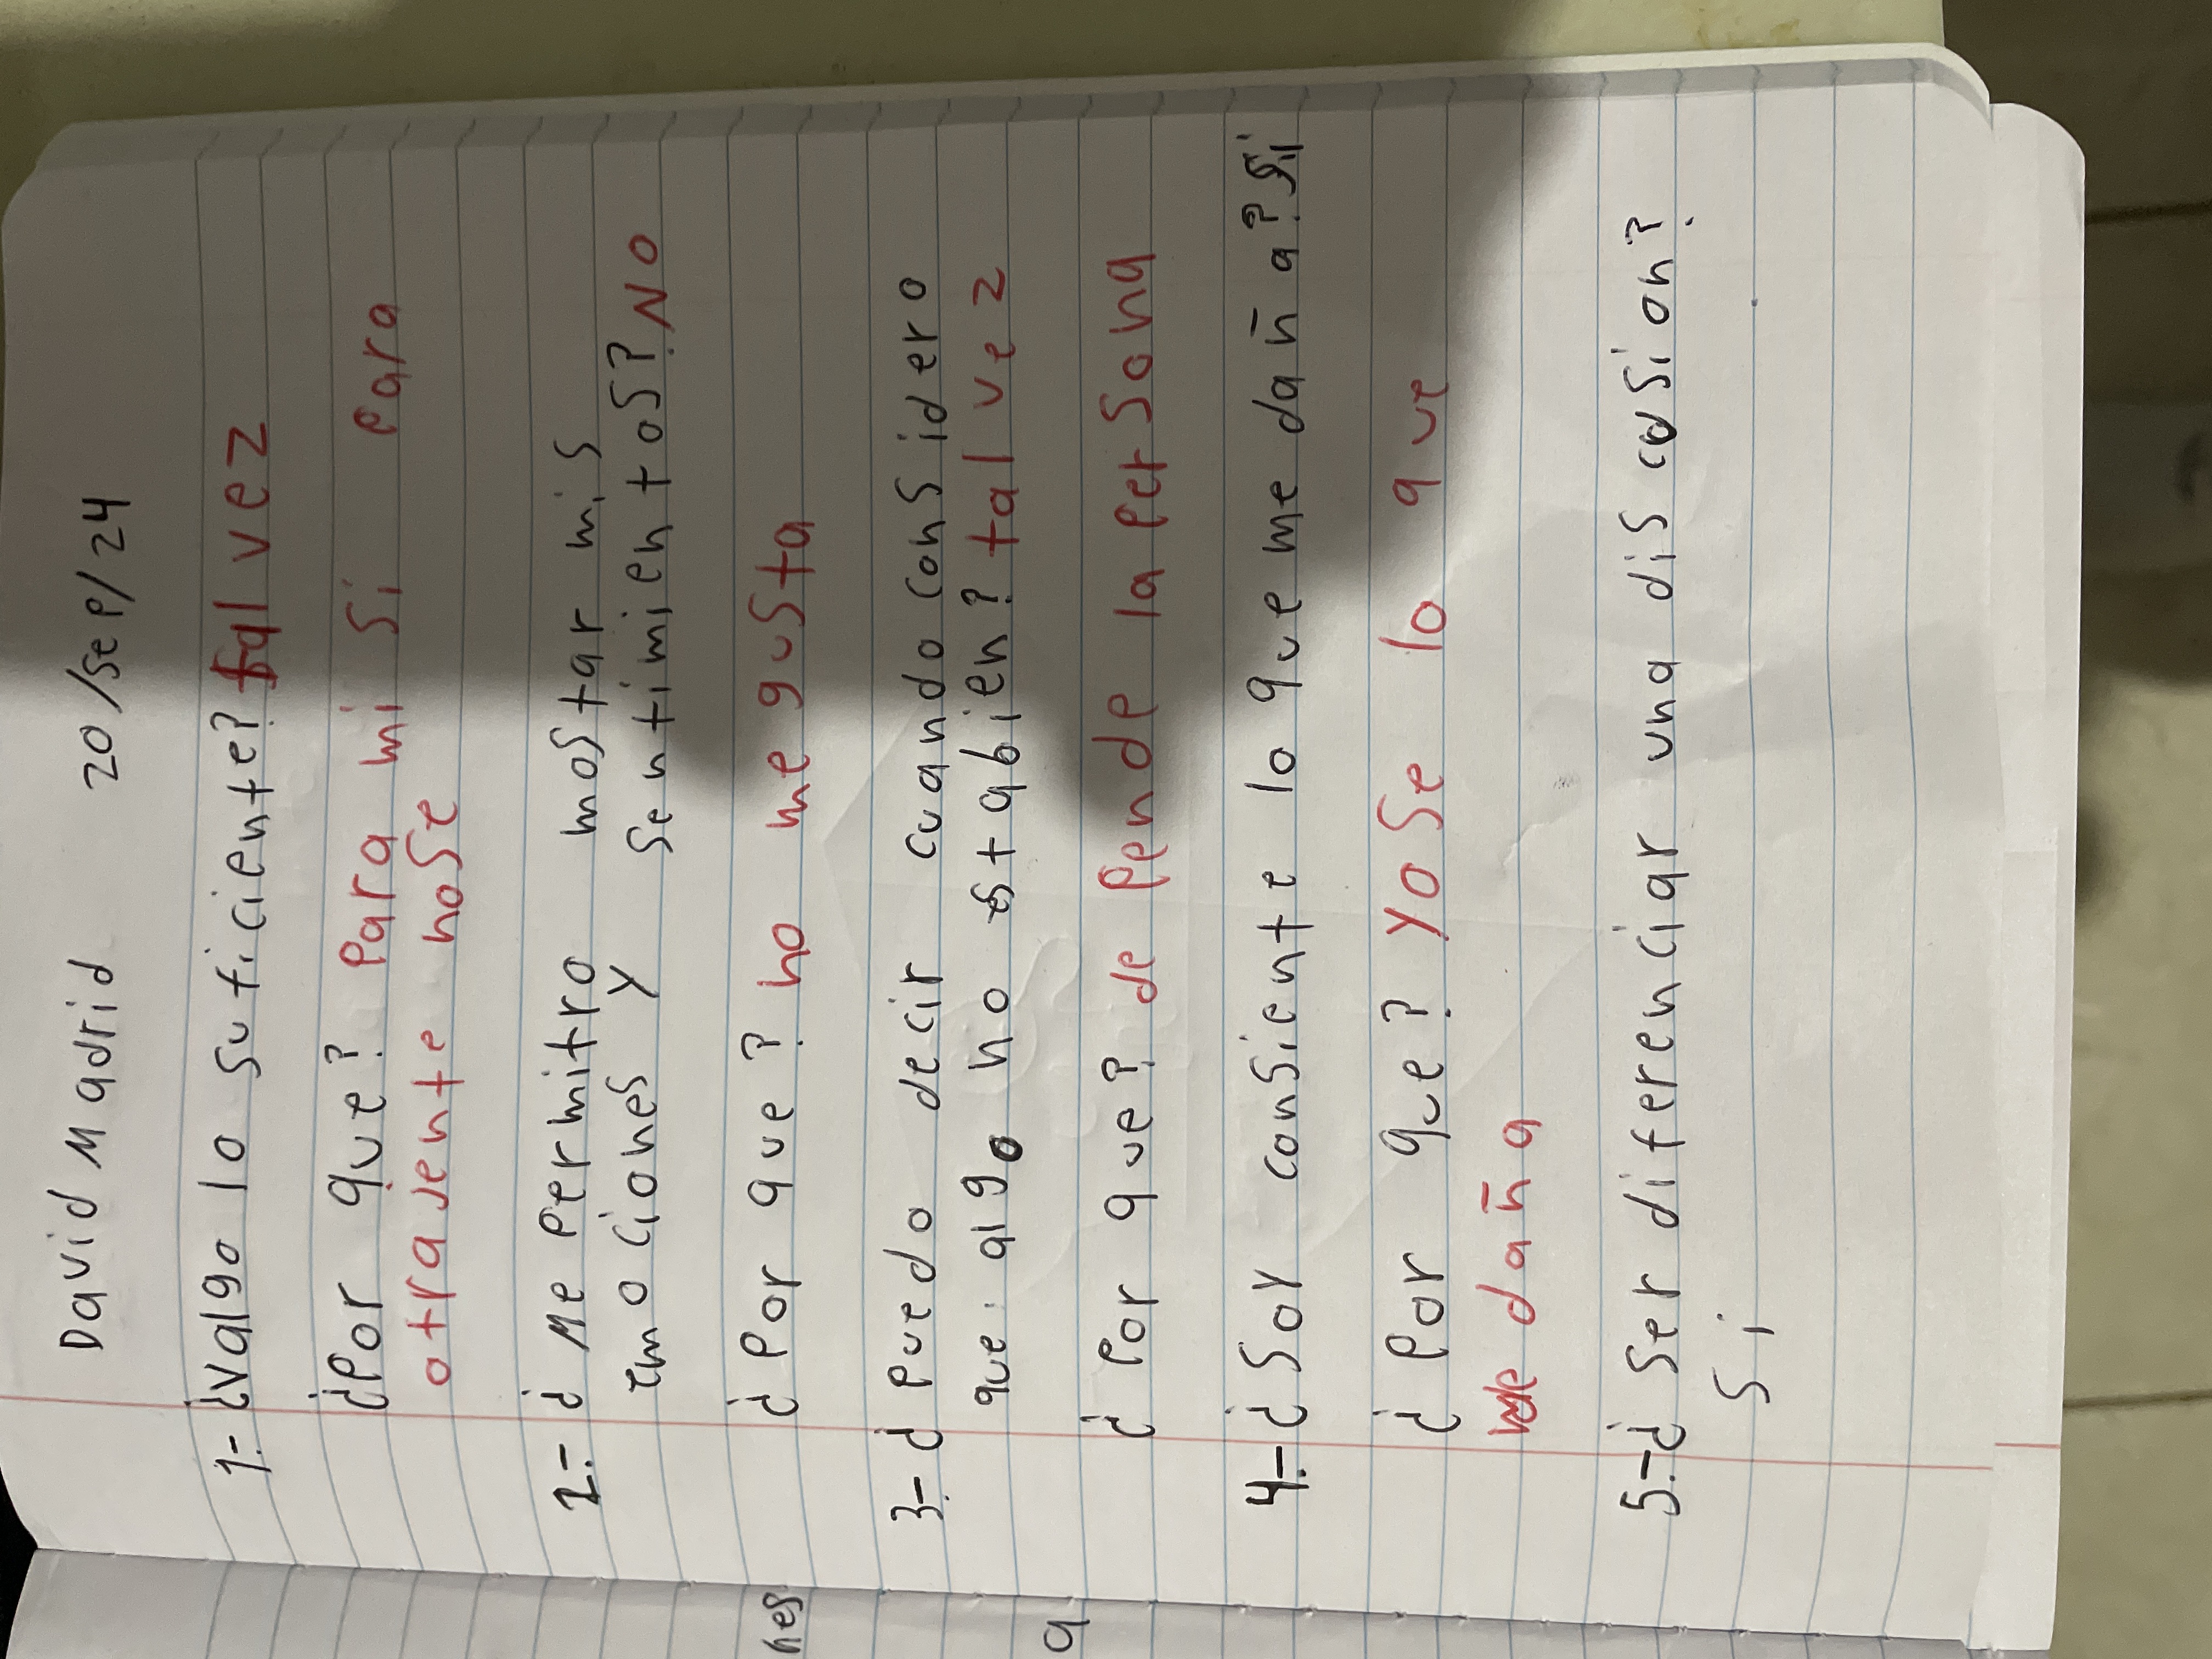 David Madrid 20/sep/24
1.- ¿Valgo lo suficiente? tal vez
¿Por que? Para mi si para
otra jente no se
2.- ¿Me permitro mostar mis
emociones y sentimientos? NO
¿Por que? no me gusta
3.- ¿Puedo decir cuando considero
que algo no esta bien? tal vez
¿Por que? de pende la persona
4.- ¿Soy consiente lo que me daña? Si
¿Por que? Yo se lo que
me daña
5.- ¿Ser diferenciar una discusion?
Si
nes
a